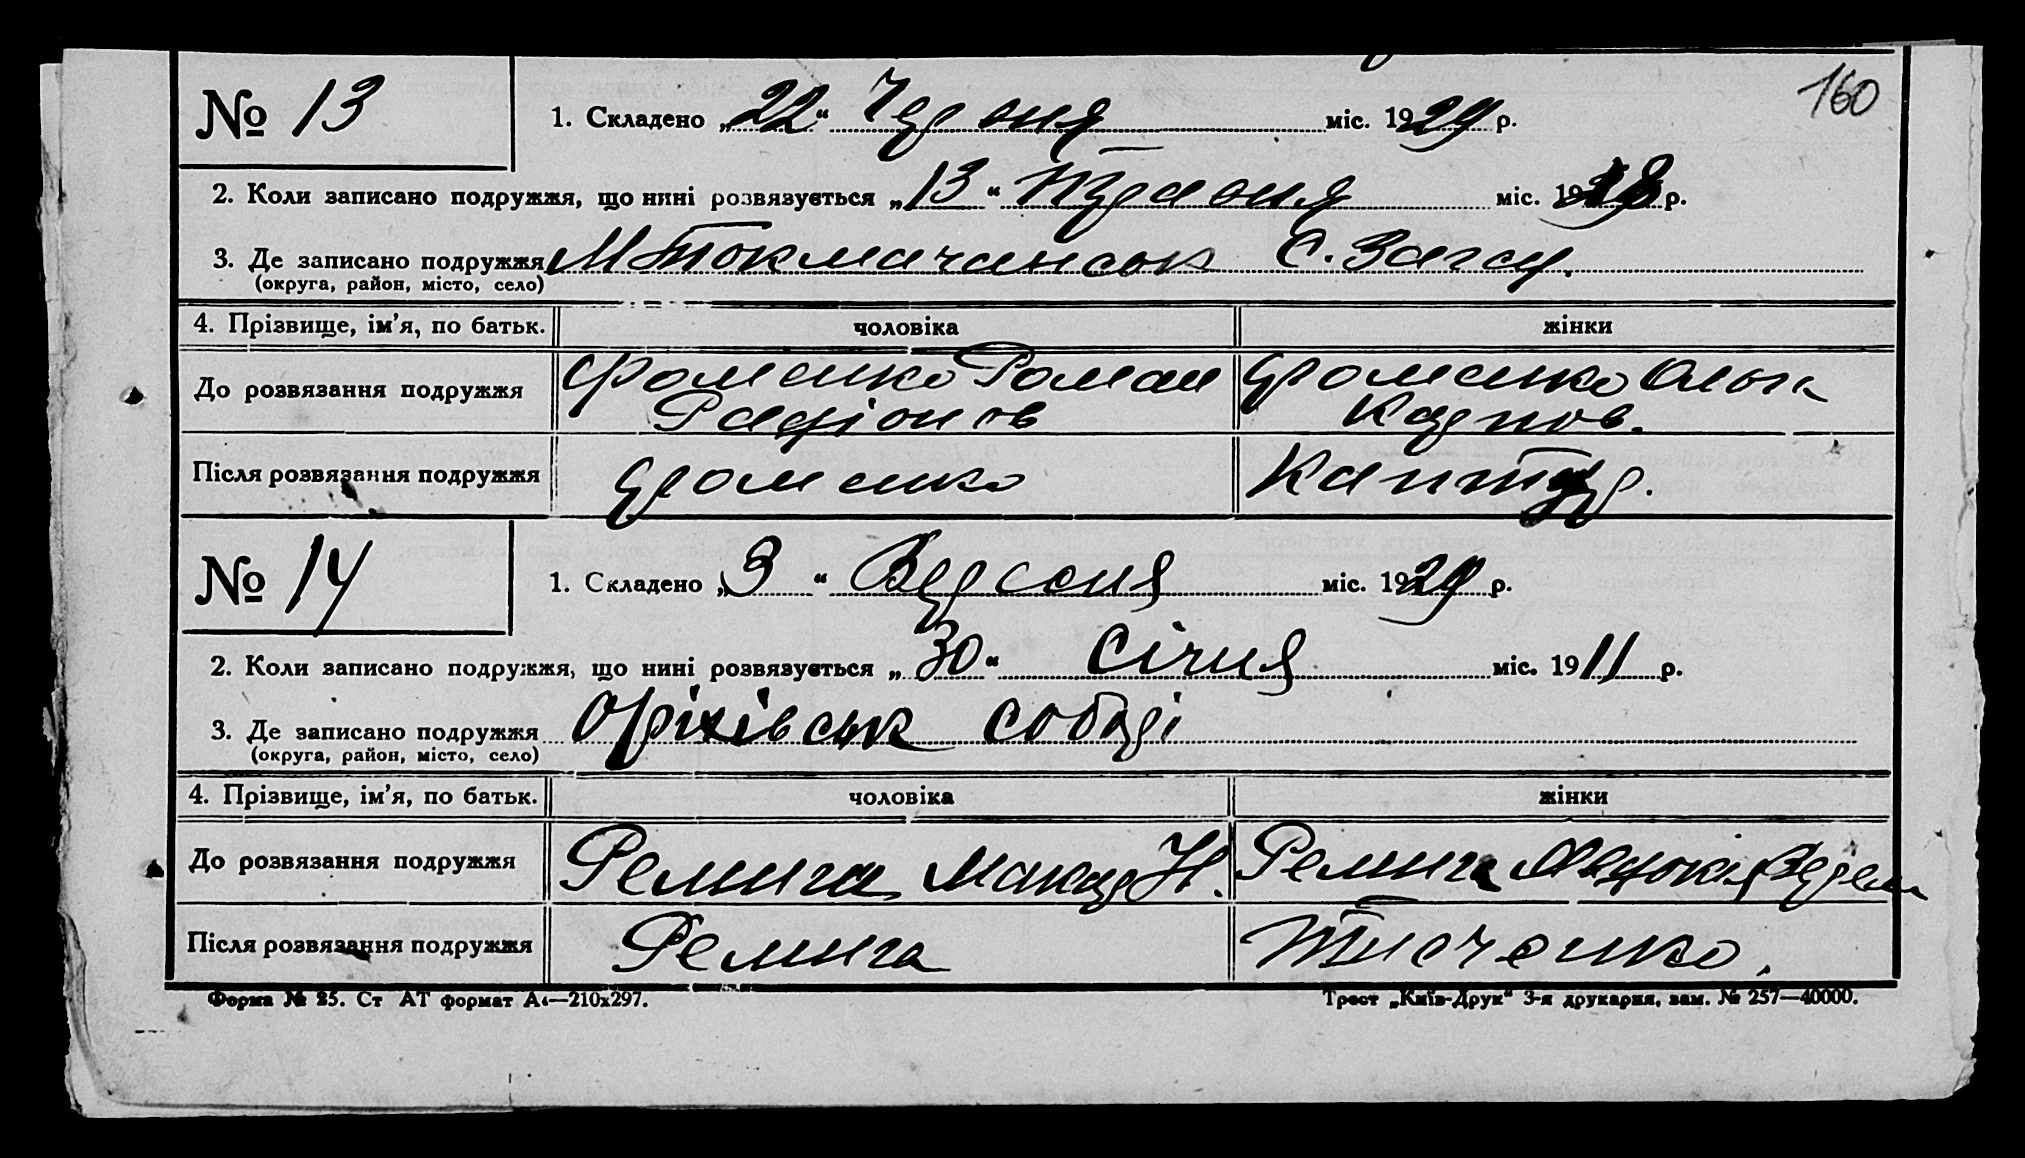 160
№ 13
1. Складено „22“ Червня міс. 1929 р.
2. Коли записано подружжя, що нині розвязується „13“ Травня міс. 19 р.
3. Де записано подружжя С. Загсу.
(округа, район, місто, село)
4. Прізвище, ім’я, по батьк. чоловіка жінки
До розвязання подружжя Фоменко Роман Фоменко
Радіонов Карпов.
Після розвязання подружжя Фоменко Каптур.
№ 14
1. Складено „3“ Вересня міс. 1929 р.
2. Коли записано подружжя, що нині розвязується „30“ Січня міс. 1911 р.
3. Де записано подружжя Оріхівськ соборі
(округа, район, місто, село)
4. Прізвище, ім’я, по батьк. чоловіка жінки
До розвязання подружжя Ремига Макар Н. Ремига
Після розвязання подружжя Ремига Тисченко.
Форма № 25. Ст АТ формат А4—210х297. Трест „Київ-Друк“ 3-я друкарня, зам. № 257—40000.